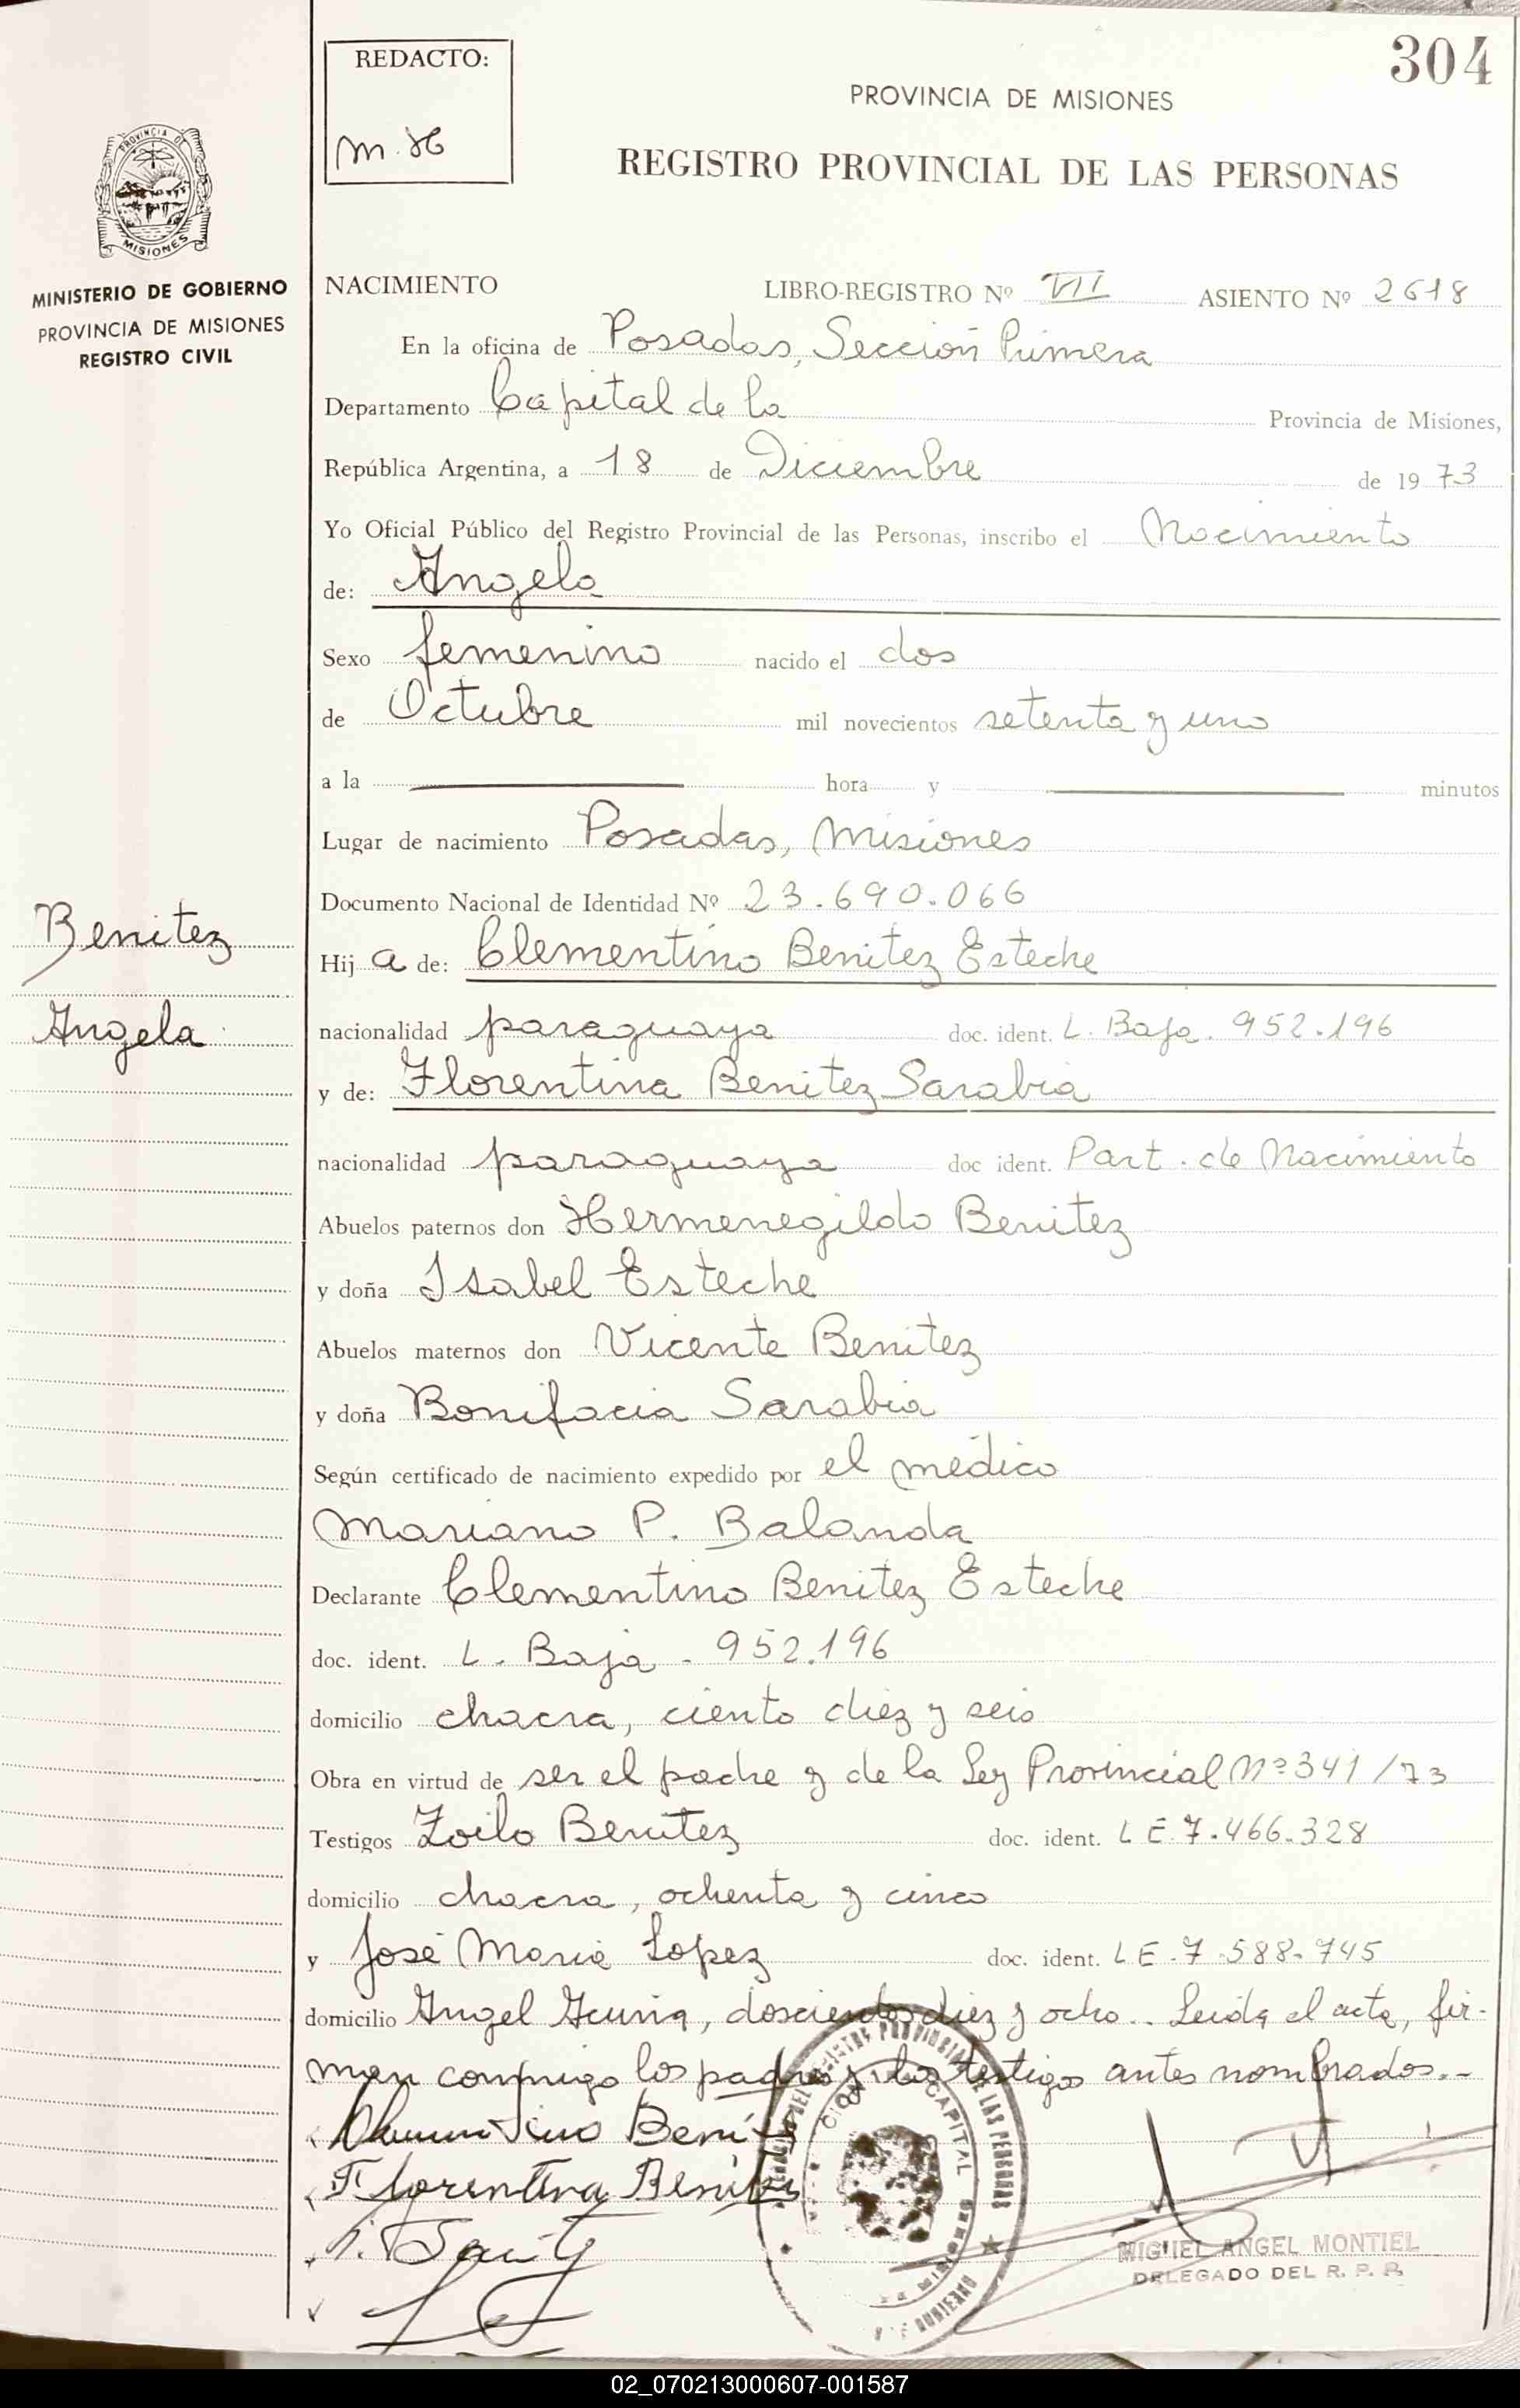 304
REDACTO:
m.H
PROVINCIA DE MISIONES
REGISTRO PROVINCIAL DE LAS PERSONAS
PROVINCIA DE
MISIONES
MINISTERIO DE GOBIERNO
PROVINCIA DE MISIONES
REGISTRO CIVIL
NACIMIENTO LIBRO-REGISTRO Nº VII ASIENTO Nº 2618
En la oficina de Posadas, Sección Primera
Departamento Capital de la Provincia de Misiones,
República Argentina, a 18 de Diciembre de 1973
Yo Oficial Público del Registro Provincial de las Personas, inscribo el Nacimiento
de: Angela
Sexo femenino nacido el dos
de Octubre mil novecientos setenta y uno
a la hora y minutos
Lugar de nacimiento Posadas, Misiones
Documento Nacional de Identidad Nº 23.690.066
Benitez
Hija de: Clementino Benitez Esteche
Angela
nacionalidad paraguaya doc. ident. L. Baja. 952.196
y de: Florentina Benitez Sarabia
nacionalidad paraguaya doc ident. Part. de Nacimiento
Abuelos paternos don Hermenegildo Benitez
y doña Isabel Esteche
Abuelos maternos don Vicente Benitez
y doña Bonifacia Sarabia
Según certificado de nacimiento expedido por el médico
Mariano P. Balanda
Declarante Clementino Benitez Esteche
doc. ident. L. Baja - 952.196
domicilio chacra, ciento diez y seis
Obra en virtud de ser el padre y de la Ley Provincial Nº 341/73
Testigos Zoilo Benitez doc. ident. L E. 7.466.328
domicilio chacra, ochenta y cinco
y José Maria Lopez doc. ident. L E. 7.588.745
domicilio Angel Acuña, doscientos diez y ocho.. Leida el acta, fir-
man conmigo los padres y los testigos antes nombrados.-
Florentina Benitez
CAPITAL
MIGUEL ANGEL MONTIEL
DELEGADO DEL R. P. P.
02_070213000607-001587